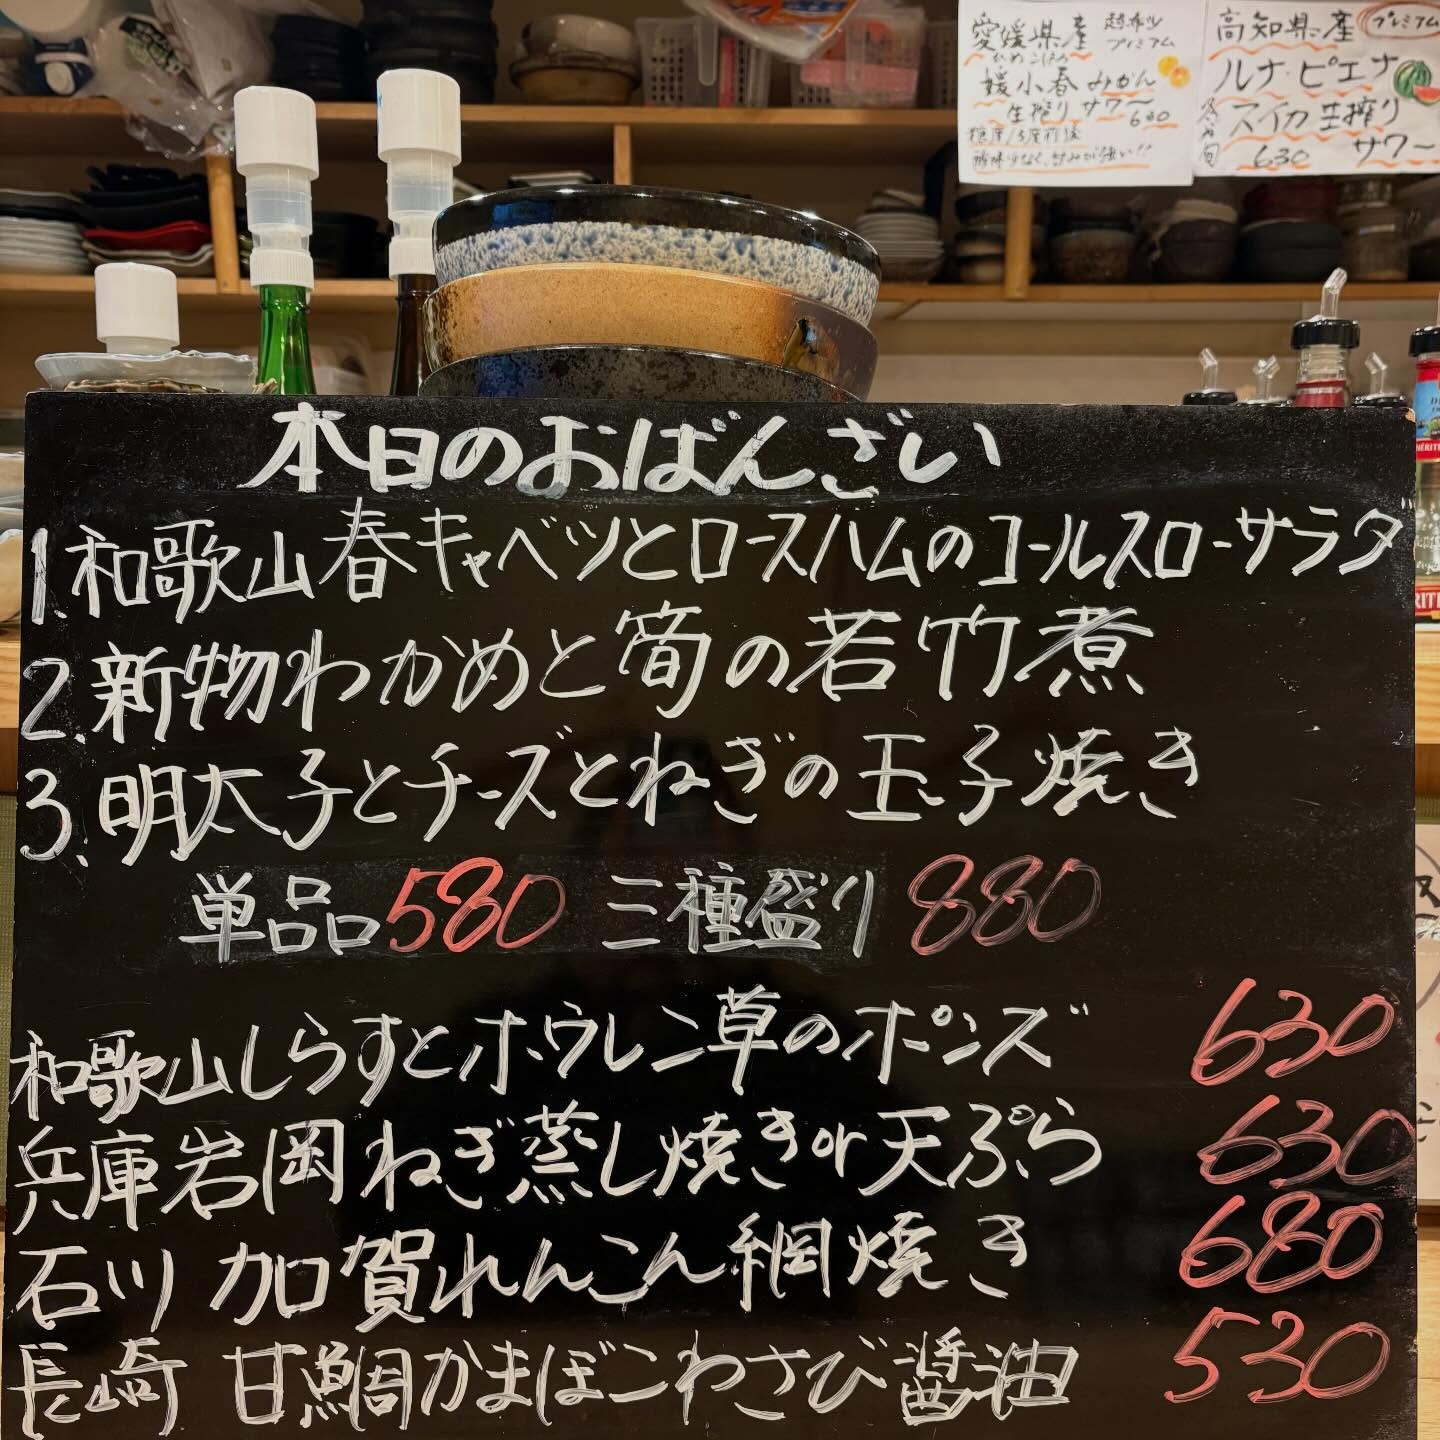 愛媛県産
ひめこはる
媛小春みかん
生搾りサワー
630
高知県産
プレミアム
ルナ・ピエナ
スイカ生搾り
サワー
630
本日のおばんざい
1.和歌山春キャベツとロースハムのコールスローサラダ
2.新物わかめと筍の若竹煮
3.明太子とチーズとねぎの玉子焼き
単品580 三種盛り 880
和歌山しらすとホウレン草のポンズ 630
兵庫岩岡ねぎ蒸し焼きor天ぷら 630
石川 加賀れんこん網焼き 680
長崎 甘鯛かまぼこわさび醤油 530